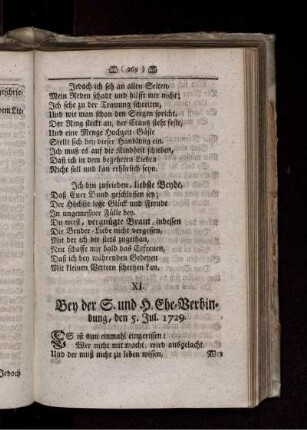 ( 269 )
Jedoch ich seh an allen Seiten,
Mein Reden schadt und hilfft mir nicht;
Ich sehe zu der Trauung schreiten,
Und wie man schon den Seegen spricht.
Der Ring steckt an, der Crantz steht feste,
Und eine Menge Hochzeit-Gäste
Stellt sich bey dieser Handlung ein.
Ich muß es auf die Kindheit schieben,
Daß ich in dem begehrten Lieben
Nicht soll und kan erhörlich seyn.
Ich bin zufrieden, liebste Beyde,
Daß Euer Bund geschlossen sey:
Der Höchste lege Glück und Freude
In ungemessner Fülle bey.
Du wirst, vergnügte Braut, indessen
Die Bruder-Liebe nicht vergessen,
Mit der ich dir stets zugethan,
Nur schaffe nur bald das Erfreuen,
Daß ich bey währenden Gedeyen
Mit kleinen Vettern schertzen kan.
XI.
Bey der S. und H. Ehe-Verbin-
dung, den 5. Jul. 1729.
ES ist nun einmahl eingerissen:
Wer nicht mit macht, wird ausgelacht.
Und der muß nicht zu leben wissen,
Wer
Jedoch